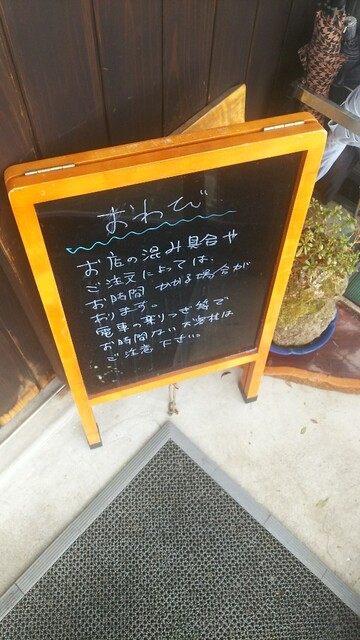 おわび
お店の混み具合や
ご注文によっては、
お時間 かかる場合が
あります。
電車の乗りつぎ等で
お時間ない お客様は
ご注意 下さい。